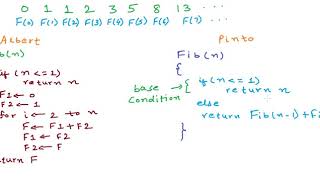 0 1 1 2 3 5 8 13 ...
F(0) F(1) F(2) F(3) F(4) F(5) F(6) F(7) ...
Albert
b(n)
if (n <= 1)
return n
F1 ← 0
F2 ← 1
for i ← 2 to n
F ← F1 + F2
F1 ← F2
F2 ← F
return F
Pinto
Fib(n)
{
base Condition → { if (n <= 1)
return n
else
return Fib(n-1) + Fi
}